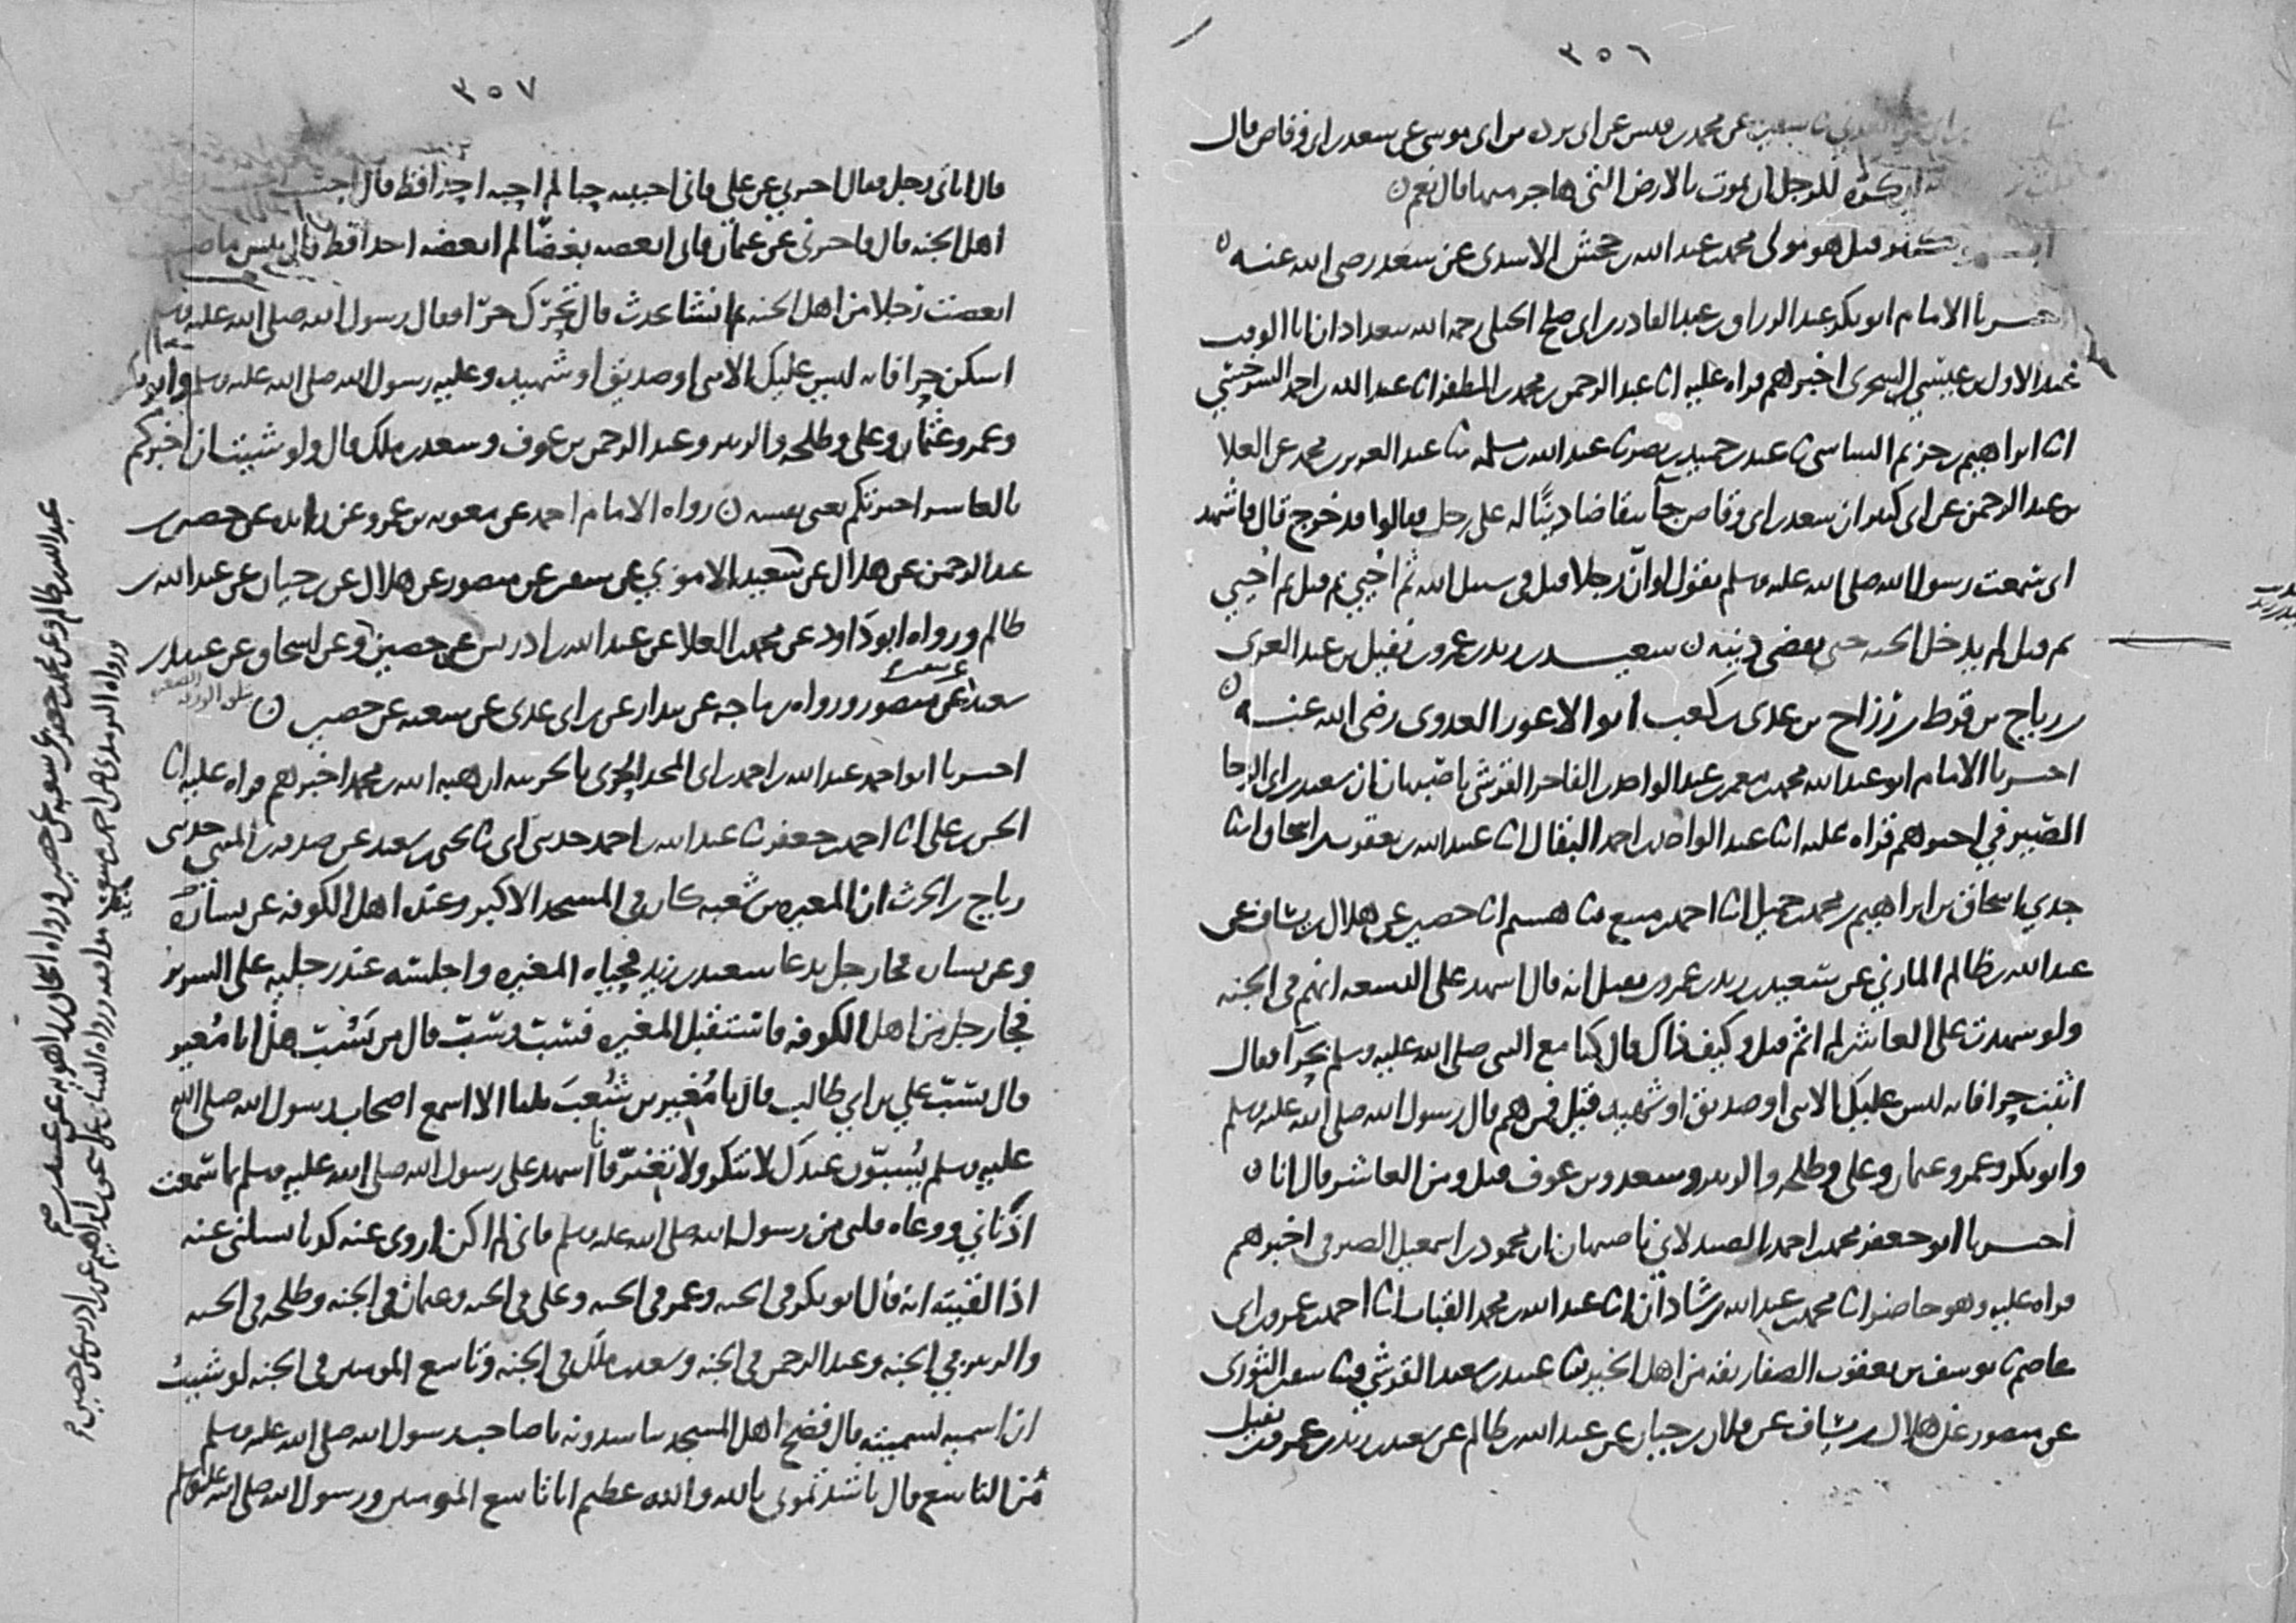 ٣٥٦
عن محمد بن قيس عن ابي بردة بن ابي موسى عن سعد بن ابي وقاص قال
يكره للرجل ان يموت بالارض التي هاجر منها قال نعم ن
قيل هو مولى محمد بن عبد الله بن جحش الاسدي عن سعد رضي الله عنه ن
اخبرنا الامام ابو بكر عبد الرزاق بن عبد القادر بن ابي صالح الجيلي رحمه الله ببغداد ان ابا الوقت
عبد الاول بن عيسى السجزي اخبرهم قراه عليه انا عبد الرحمن بن محمد بن المظفر انا عبد الله بن احمد السرخسي
انا ابراهيم بن خزيم الشاشي ثنا عبد بن حميد بن نصر ثنا عبد الله بن مسلمه ثنا عبد العزيز بن محمد عن العلا
بن عبد الرحمن عن ابي كثير ان سعد بن ابي وقاص جآ يتقاضا دينًا له على رجل فقالوا قد خرج قال فاشهد
اني سمعت رسول الله صلى الله عليه وسلم يقول لو ان رجلا قتل في سبيل الله ثم احيي ثم قتل ثم احيي
ثم قتل لم يدخل الجنه حتى يقضى دينه ن سعيد بن زيد بن عمرو بن نفيل بن عبد العزى
بن رياح بن قرط بن رزاح بن عدي بن كعب ابو الاعور العدوي رضي الله عنه ن
اخبرنا الامام ابو عبد الله محمد بن معمر بن عبد الواحد بن الفاخر القرشي باصبهان ان سعيد بن ابي الرجا
الصيرفي اخبرهم قراه عليه انا عبد الواحد بن احمد البقال انا عبيد الله بن يعقوب بن اسحاق انا
جدي اسحاق بن ابراهيم بن محمد بن جميل انا احمد بن منيع ثنا هشيم انا حصين عن هلال بن يساف عن
عبد الله بن ظالم المازني عن سعيد بن زيد بن عمرو بن نفيل انه قال اشهد على التسعه انهم في الجنه
ولو شهدت على العاشر لم اثم قيل وكيف ذاك قال كنا مع النبي صلى الله عليه وسلم بحرآ فقال
اثبت حرا فانه ليس عليك الا نبي او صديق او شهيد قيل فمن هم قال رسول الله صلى الله عليه وسلم
وابو بكر وعمر وعثمان وعلي وطلحه والزبير وسعد وبن عوف قيل ومن العاشر قال انا ن
اخبرنا ابو جعفر محمد بن احمد الصيدلاني باصبهان ان محمود بن اسمعيل الصيرفي اخبرهم
قراه عليه وهو حاضر انا محمد بن عبد الله بن شاذان انا عبد الله بن محمد القباب انا احمد بن عمرو بن ابي
عاصم ثنا يوسف بن يعقوب الصفار ثقه من اهل الخير ثنا عبيد بن سعيد القرشي ثنا سفين الثوري
عن منصور عن هلال بن يساف عن فلان بن حيان عن عبد الله بن ظالم عن سعيد بن زيد بن عمرو بن نفيل
٣٥٧
قال اتاني رجل فقال اخبرني عن علي فاني احببته حبا لم احبه احدا قط قال احببت
اهل الجنه قال فاخبرني عن عثمان فاني ابغضه بغضًا لم ابغضه احدا قط قال بئس ما صنعت
ابغضت رجلا من اهل الجنه ثم انشا يحدث قال تحرك حرا فقال رسول الله صلى الله عليه وسلم
اسكن حرا فانه ليس عليك الا نبي او صديق او شهيد وعليه رسول الله صلى الله عليه وسلم وابو بكر
وعمر وعثمان وعلي وطلحه والزبير وعبد الرحمن بن عوف وسعد بن ملك قال ولو شيت ان اخبركم
بالعاشر اخبرتكم يعني نفسه ن رواه الامام احمد عن معويه بن عمرو عن زائده عن حصين بن
عبد الرحمن عن هلال عن سعيد الاموي عن سفين عن منصور عن هلال عن بن حيان عن عبد الله بن
ظالم ورواه ابو داود عن محمد بن العلا عن عبد الله بن ادريس عن حصين وعن اسحاق عن عبيد بن
سعيد عن منصور ورواه بن ماجه عن بندار عن بن ابي عدي عن شعبه عن حصين ن
اخبرنا ابو احمد عبد الله بن احمد بن ابي المجد الحربي بالحربيه ان هبه الله بن محمد اخبرهم قراه عليه انا
الحسن بن علي انا احمد بن جعفر ثنا عبد الله بن احمد حدثني ابي ثنا يحيى بن سعيد عن صدقه بن المثنى حدثني
رياح بن الحرث ان المغيره بن شعبه كان في المسجد الاكبر وعنده اهل الكوفه عن يساره
وعن يمينه فجاه رجل يدعا سعيد بن زيد فحياه المغيره واجلسه عند رجليه على السرير
فجا رجل من اهل الكوفه فاستقبل المغيره فسب وسب قال من يسب هذا يا مغير
قال يسب علي بن ابي طالب قال يا مغير بن شعب ثلثا الا اسمع اصحاب رسول الله صلى الله
عليه وسلم يسبون عندك لا تنكر ولا تغير فانا اشهد على رسول الله صلى الله عليه وسلم بما سمعت
اذناي ووعاه قلبي من رسول الله صلى الله عليه وسلم فاني لم اكن اروي عنه كذبا يسالني عنه
اذا لقيته انه قال ابو بكر في الجنه وعمر في الجنه وعلي في الجنه وعثمان في الجنه وطلحه في الجنه
والزبير في الجنه وعبد الرحمن في الجنه وسعد بن ملك في الجنه وتاسع المومنين في الجنه لو شيت
ان اسميه لسميته قال فضج اهل المسجد يناشدونه يا صاحب رسول الله صلى الله عليه وسلم
من التاسع قال ناشدتموني بالله والله عظيم انا تاسع المومنين ورسول الله صلى الله عليه وسلم
عبد الله بن ظالم وعن محمد بن جعفر عن شعبه عن حصين ورواه اسحاق بن راهويه عن عبيد بن سعيد
ورواه الترمذي عن احمد بن منيع ورواه النسائي عن اسحق بن ابراهيم عن بن ادريس عن حصين